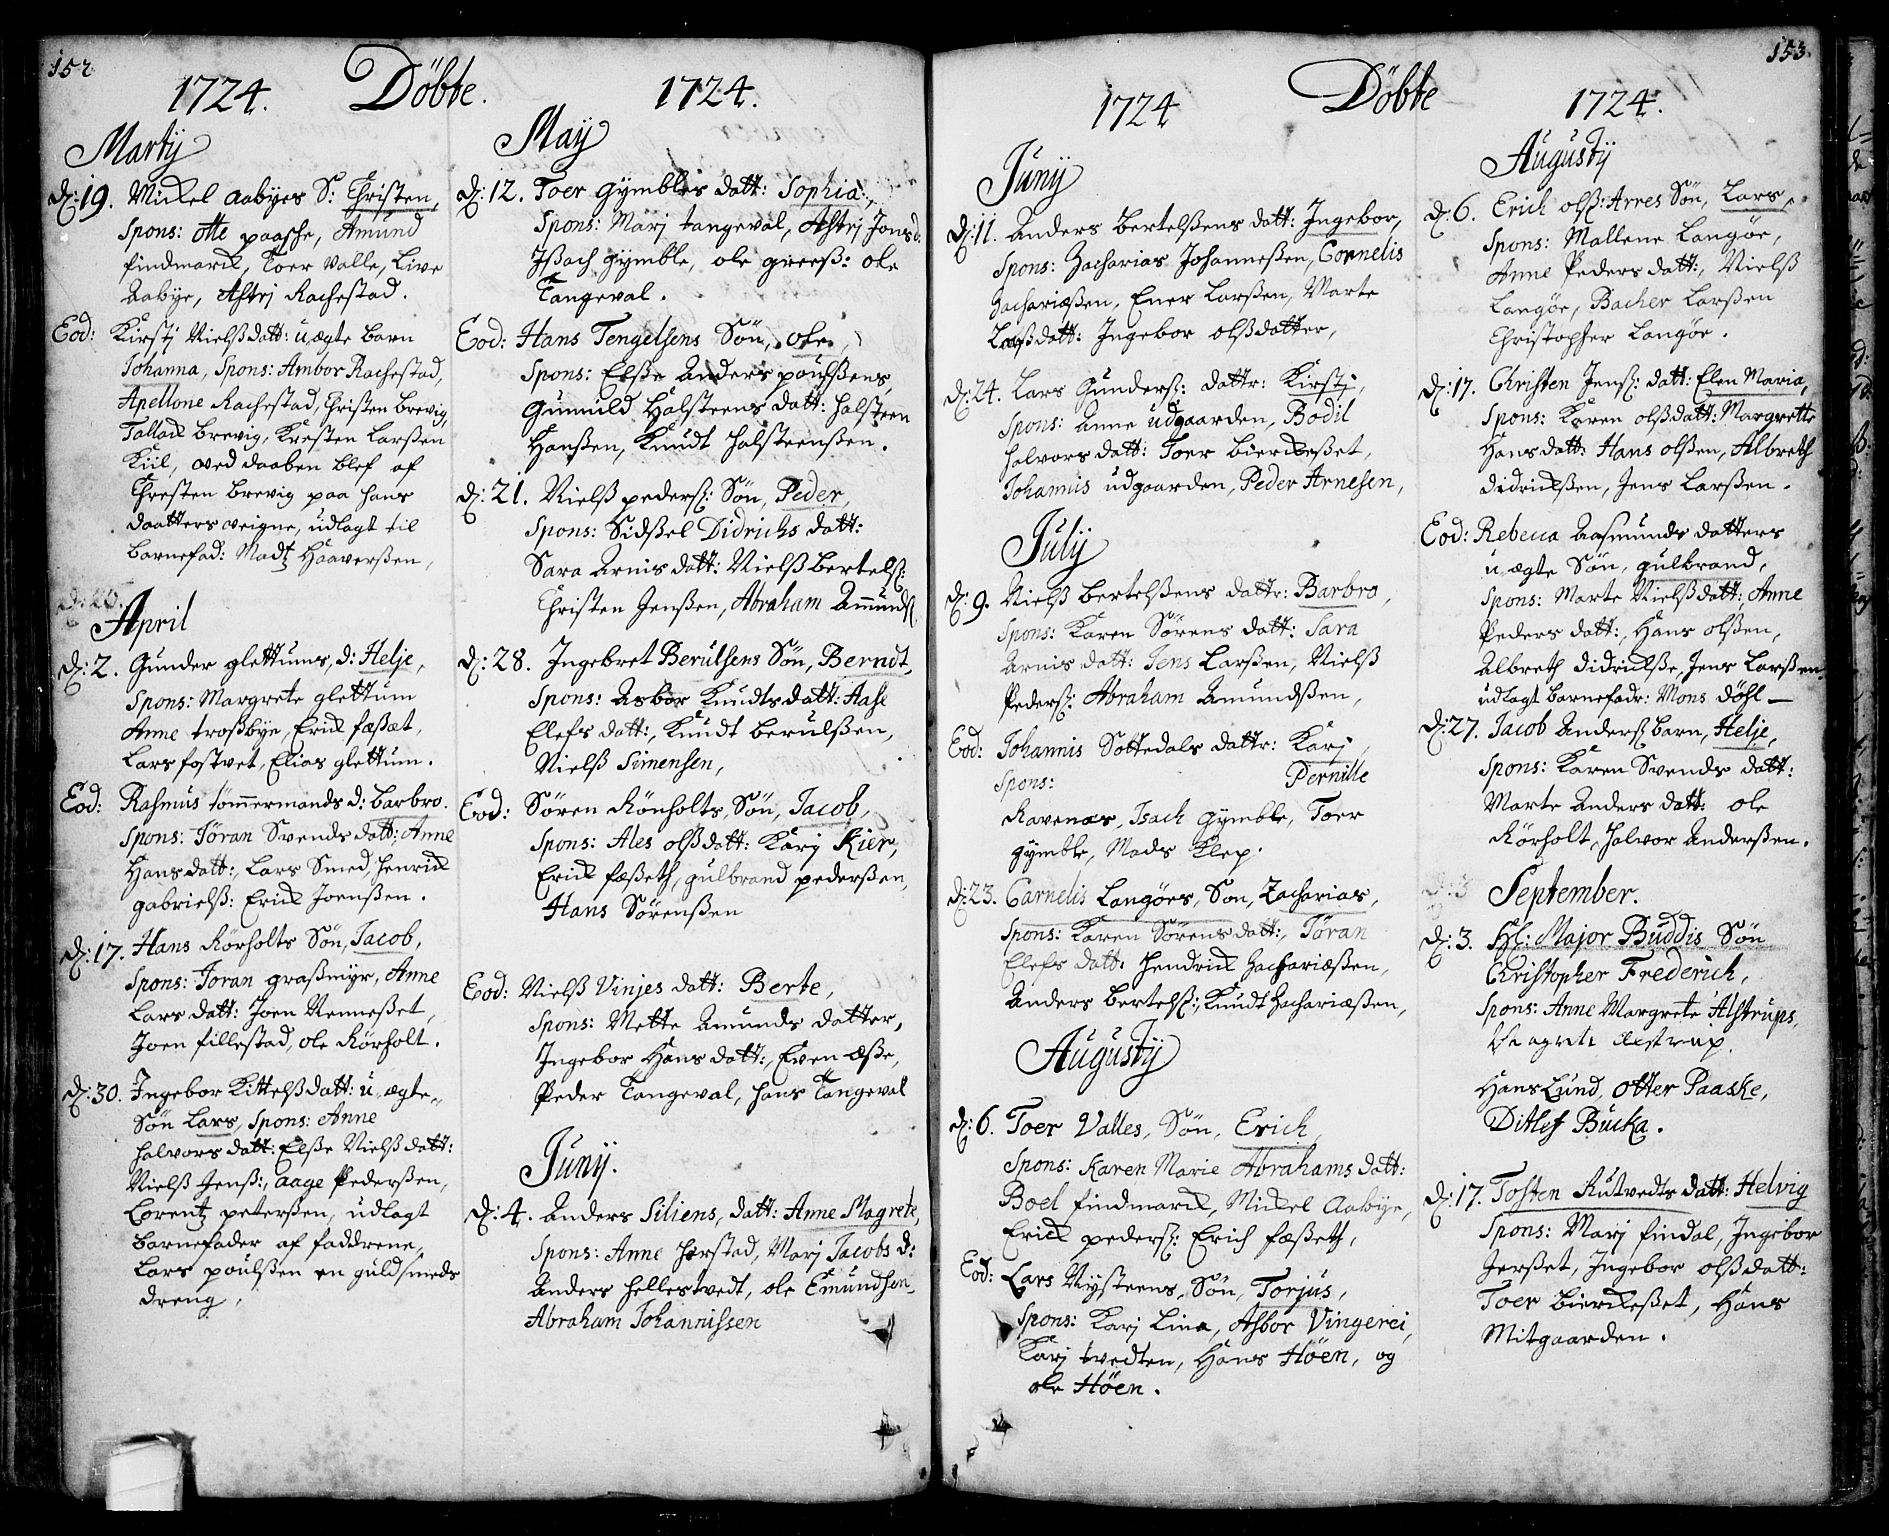 152
1724. Döbte. 1724.
Martij
d: 19. Mickel Aabyes S: Christen,
Spons: Otte paasche, Amund
findmarck, Toer Valle, Live
Aabye, Astrj Rachestad.
Eod: Kirstj Nielsdatt: uægte barn
Johanna, Spons: Ambor Rachestad,
Apellone Rachestad, Christen brevig,
Tallack brevig, Kresten Larßen
Kiil, ved daaben blef af
Chresten brevig paa hans
daatters veigne, udlagt til
barnefad: Madtz Haaverßen,
d: 26.
April
d: 2. Gunder glettums, d: Helje,
Spons: Margrete glettum
Anne troßbye, Erick fæßæt,
Lars fostvet, Elias glettum.
Eod: Rasmus tömmermands d: barbro.
Spons: Jöran Svends datt: Anne
Hansdatt: Lars Smed, Henrick
gabrielß: Erick Joenßen.
d: 17. Hans Rörholts Sön, Jacob,
Spons: Joran graßmyr, Anne
Lars datt: Joen Venneßet,
Joen fillestad, ole Rörholt.
d: 30. Ingebor Kittelß datt: u ægte
Sön Lars, Spons: Anne
halvors datt: Elße Nielß datt:
Nielß Jenß:, Aage Pederßen,
Lorentz peterßen, udlagt
barnefader af faddrene
Lars poulßen en guldsmeds
dreng,
May
d: 12. Toer gymbles datt: Sophia,
Spons: Marj tangeval, Astrj Jonsd:
Ißach gymble, ole greerß: ole
Tangeval.
Eod: Hans Tengelsens Sön, ole,
Spons: Elße Anders poulßens,
Gunnild Halsteens datt: halsteen
Hanßen, Knudt halsteenßen.
d: 21. Nielß pederß: Sön, Peder,
Spons: Sidßel Didrichs datt:
Sara Arnis datt: Nielß bertelß:
Christen Jenßen, Abraham Amundß
d: 28. Ingebret Berulsens Sön, Berndt,
Spons: Asbor Knudts datt: Aase
Elefs datt:, Knudt berulßen,
Nielß Simensen,
Eod: Sören Rönholts, Sön, Jacob,
Spons: Ales olß datt: Karj Kier,
Erick fæßeth, gulbrand pederßen,
Hans Sörenßen
Eod: Nielß Vinjes datt: Berte,
Spons: Mette Amunds datter,
Ingebor Hans datt:, Even æße,
Peder Tangeval, hans Tangeval
Junij.
d: 4. Anders Siliens, datt: Anne Magrete,
Spons: Anne herstad, Marj Jacobs d:
Anders hellestvedt, ole Emundsen
Abraham Johannissen
153
1724 Döbte 1724.
Junij
d: 11. Anders bertelßens datt: Ingebor,
Spons: Zacharias Johanneßen, Cornelis
Zachariæßen, Ener Larßen, Marte
Larßdatt: Ingebor olßdatter,
d: 24. Lars Gunderß: dattr: Kirstj,
Spons: Anne udgaarden, Bodil
halvors datt: Toer bierckeßet,
Johannis udgaarden, Peder Arnesen,
Julij
d: 9. Nielß bertelßens dattr: Barbro,
Spons: Karen Sörens datt: Sara
Arnis datt: Jens Larßen, Nielß
Pederß: Abraham Amundßen,
Eod: Johannis Sottedals dattr: Karj,
Spons: Pernille
Ravenæs, Isach gymble, Toer
gymble, Mads Klep.
d: 23. Carnelis Langöes, Son, Zacharias,
Spons: Karen Sörens datt:, Töran
Elefs datt: Hendrick Zachariæßen,
Anders bertelß:, Knudt Zachariæßen,
Augustij
d: 6. Toer Valles, Sön, Erich,
Spons: Karen Marie Abrahams datt:
Boel findmarck, Mickel Aabye,
Erick pederß: Erich fæßeth,
Eod: Lars Nysteens, Sön, Torjus,
Spons: Karj Lina, Asbor Vingerei,
Karj tvedten, Hans Höen, og
ole Höen.
Augustij
d: 6. Erich olß: Arres Sön, Lars,
Spons: Mallene Langöe,
Anne Peders datt:, Nielß
Langöe, Bacher Larßen
Christopher Langöe.
d: 17. Christen Jenß: datt: Elen Maria,
Spons: Karen olßdatt: Margrette
Hansdatt: Hans olßen, Albreth
didrickßen, Jens Larßen.
Eod: Rebecca Aasmunds datters
u ægte Sön, gulbrand,
Spons: Marte Nielß datt:, Anne
Peders datt:, Hans olßen,
Albreth didrickße, Jens Larßen
udlagt barnefadr: Mons döhl
d: 27. Jacob Anderß barn, Helje,
Spons: Karen Svends datt:
Marte Anders datt: ole
Rörholt, halvor Anderßen.
d: 3 September.
d: 3. Hl: Major Buddis Sön
Christopher Frederich,
Spons: Anne Margrete Alstrups,
Hans Lund, Otter Paaske,
Ditlef Bucka.
d: 17. Tosten Rutvedts datt: Helvig
Spons: Marj findal, Ingebor
Jerßet, Ingebor olßdatt:
Toer bierckeßet, Hans
Mitgaarden.